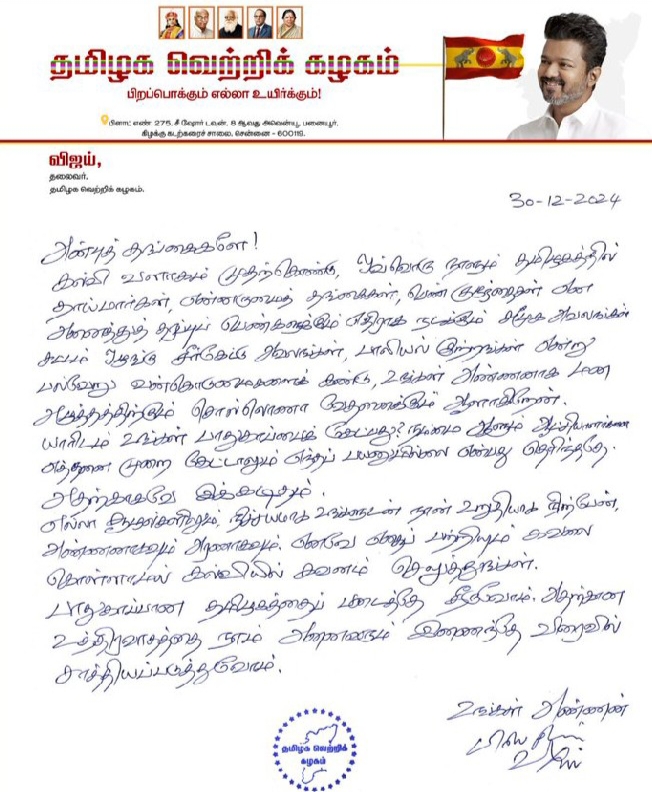 தமிழக வெற்றிக் கழகம்
பிறப்பொக்கும் எல்லா உயிர்க்கும்!
பிளாட் எண் 275, சீ ஷோர் டவுன், 8 ஆவது அவென்யூ, பனையூர்,
கிழக்கு கடற்கரைச் சாலை, சென்னை - 600119.
விஜய்,
தலைவர்,
தமிழக வெற்றிக் கழகம்.
30-12-2024
அன்புத் தங்கைகளே!
கல்வி வளாகம் முதற்கொண்டு, ஒவ்வொரு நாளும் தமிழகத்தில்
தாய்மார்கள், என்னருமைத் தங்கைகள், பெண் குழந்தைகள் என
அனைத்துத் தரப்புப் பெண்களுக்கும் எதிராக நடக்கும் சமூக அவலங்கள்
சட்டம் ஒழுங்கு சீர்கேட்டு அவலங்கள், பாலியல் குற்றங்கள் என்று
பல்வேறு வன்கொடுமைகளைக் கண்டு, உங்கள் அண்ணனாக மன
அழுத்தத்திற்கும் சொல்லொணா வேதனைக்கும் ஆளாகிறேன்.
யாரிடம் உங்கள் பாதுகாப்பைக் கேட்பது? நம்மை ஆளும் ஆட்சியாளர்களை
எத்தனை முறை கேட்டாலும் எந்தப் பயனுமில்லை என்பது தெரிந்ததே.
அதற்காகவே இக்கடிதம்.
எல்லா சூழல்களிலும், நிச்சயமாக உங்களுடன் நான் உறுதியாக நிற்பேன்,
அண்ணனாகவும் அரணாகவும். எனவே எதைப் பற்றியும் கவலை
கொள்ளாமல் கல்வியில் கவனம் செலுத்துங்கள்.
பாதுகாப்பான தமிழகத்தைப் படைத்தே தீருவோம். அதற்கான
உத்திரவாதத்தை நாம் அனைவரும் இணைந்தே விரைவில்
சாத்தியப்படுத்துவோம்.
உங்கள் அண்ணன்
விஜய்
தமிழக வெற்றிக்
கழகம்